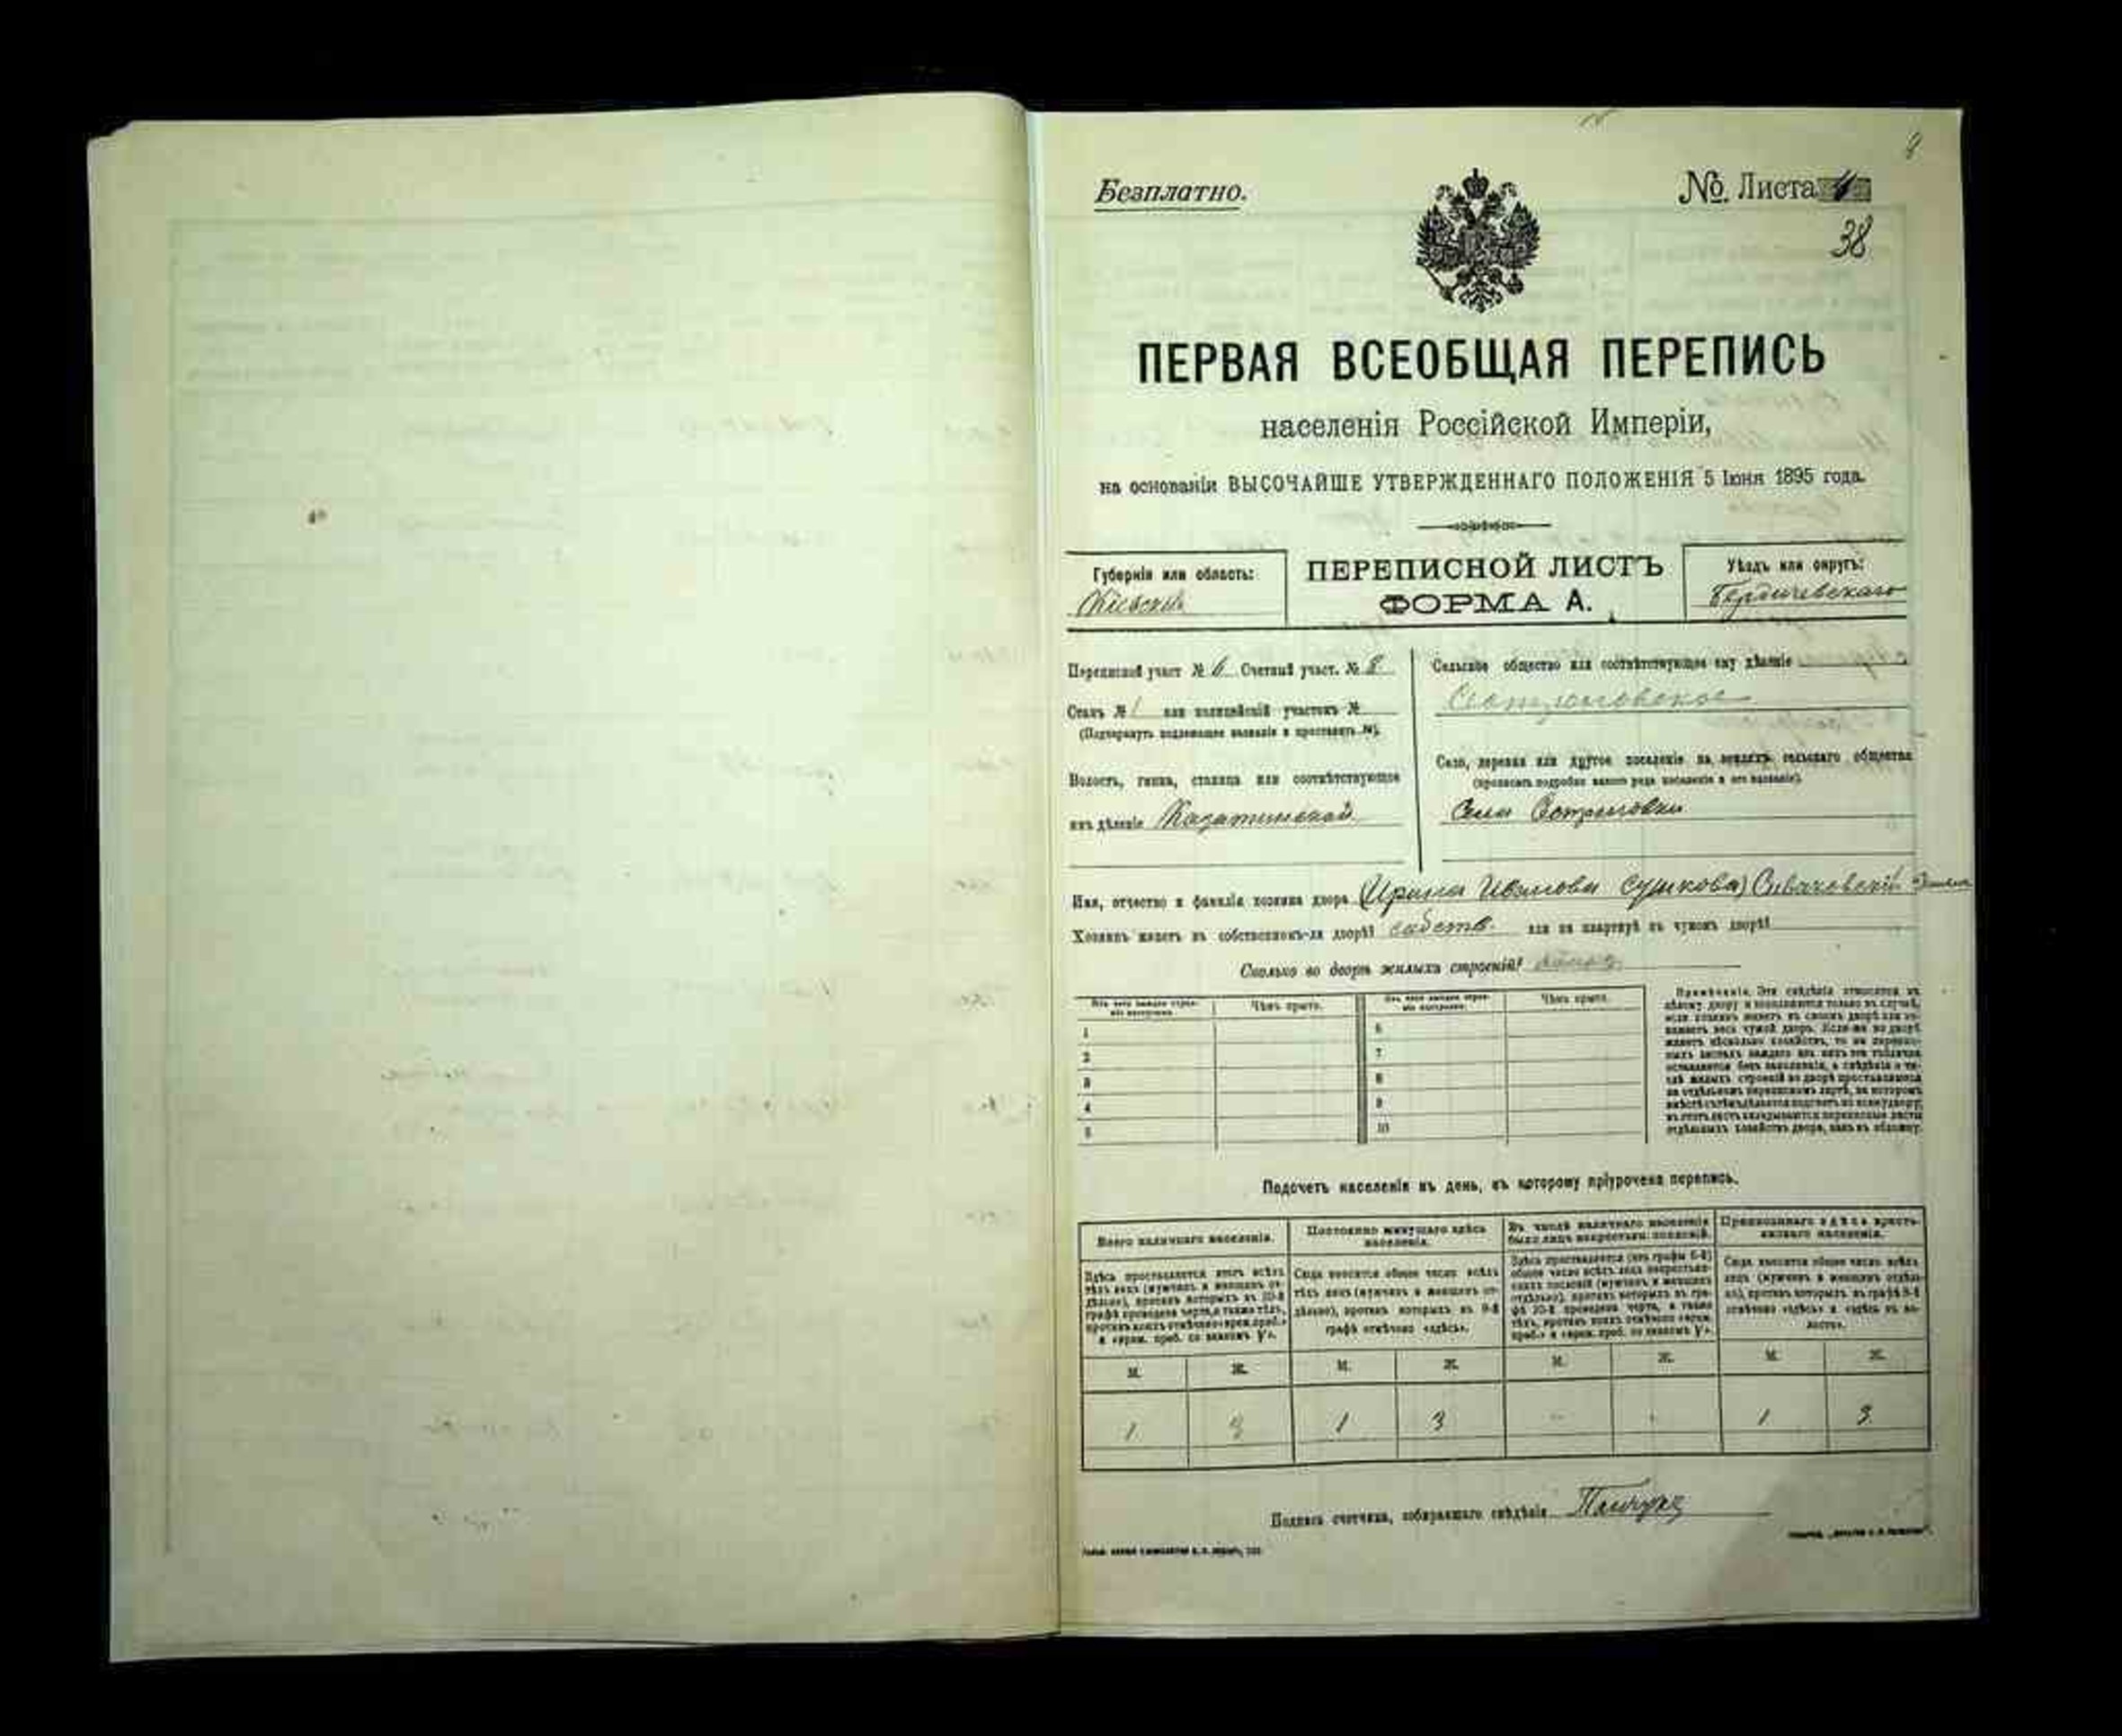 Безплатно.
№ Листа
38
ПЕРВАЯ ВСЕОБЩАЯ ПЕРЕПИСЬ
населенія Россійской Имперіи,
на основаніи ВЫСОЧАЙШЕ УТВЕРЖДЕННАГО ПОЛОЖЕНІЯ 5 Іюня 1895 года.
Губернія или область:
Кіевская
ПЕРЕПИСНОЙ ЛИСТЪ
ФОРМА А.
Уѣздъ или округъ:
Бердичевскаго
Переписной участ № 6 Счетный участ. № 8
Станъ № 1 или полицейскій участокъ №
(Подчеркнуть подлежащее названіе и проставить №).
Волость, гмина, станица или соотвѣтствующее
имъ дѣленіе Казатинской
Сельское общество или соотвѣтствующее ему дѣленіе
Сестриновское
Село, деревня или другое поселеніе на земляхъ сельскаго общества
(прописать подробно какого рода поселеніе и его названіе).
Села Сестриновки
Имя, отчество и фамилія хозяина двора (Ирина Иванова Сушкова)
Хозяинъ живетъ въ собственномъ-ли дворѣ? собств. или на квартирѣ въ чужомъ дворѣ?
Сколько во дворѣ жилыхъ строеній?
Изъ чего каждое строеніе построено.
Чѣмъ крыто.
Изъ чего каждое строеніе построено.
Чѣмъ крыто.
1
6
2
7
3
8
4
9
5
10
Примѣчаніе. Эти свѣдѣнія относятся къ
цѣлому двору и заполняются только въ случаѣ,
если хозяинъ живетъ въ своемъ дворѣ или за-
нимаетъ весь чужой дворъ. Если-же во дворѣ
живетъ нѣсколько хозяйствъ, то на перепис-
ныхъ листахъ каждаго изъ нихъ эта табличка
оставляется безъ заполненія, а свѣдѣнія о чи-
слѣ жилыхъ строеній во дворѣ проставляются
на отдѣльномъ переписномъ листѣ, на которомъ
вмѣстѣ съ тѣмъ дѣлается подсчетъ по всему двору;
въ этотъ листъ вкладываются переписные листы
отдѣльныхъ хозяйствъ двора, какъ въ обложку.
Подсчетъ населенія въ день, къ которому пріурочена перепись.
Всего наличнаго населенія.
Постоянно живущаго здѣсь населенія.
Въ числѣ наличнаго населенія было лицъ некрестьян. сословій.
Приписаннаго здѣсь крестьянскаго населенія.
Здѣсь проставляется итогъ всѣхъ
тѣхъ лицъ (мужчинъ и женщинъ от-
дѣльно), противъ которыхъ въ 10-й
графѣ проведена черта, а также тѣхъ,
противъ коихъ отмѣчено «врем. преб.»
Сюда вносится общее число всѣхъ
тѣхъ лицъ (мужчинъ и женщинъ от-
дѣльно), противъ которыхъ въ 9-й
графѣ отмѣчено «здѣсь».
Здѣсь проставляется (изъ графы 6-й)
общее число всѣхъ лицъ некрестьян-
скихъ сословій (мужчинъ и женщинъ
отдѣльно), противъ которыхъ въ гра-
фѣ 10-й проведена черта, а также
тѣхъ, противъ коихъ отмѣчено «врем.
Сюда вносится общее число всѣхъ
лицъ (мужчинъ и женщинъ отдѣль-
но), противъ которыхъ въ графѣ 8-й
отмѣчено «здѣсь» и «здѣсь въ во-
лости».
М. Ж. М. Ж. М. Ж. М. Ж.
1 3 1 3 - - 1 3
Подпись счетчика, собиравшаго свѣдѣнія